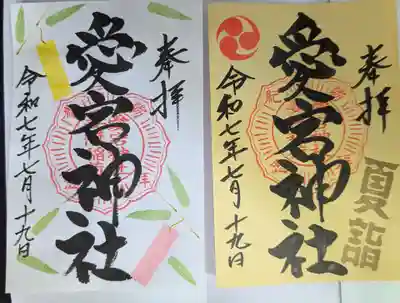 奉拝
愛宕神社
令和七年七月十九日
奉拝
夏詣
愛宕神社
令和七年七月十九日